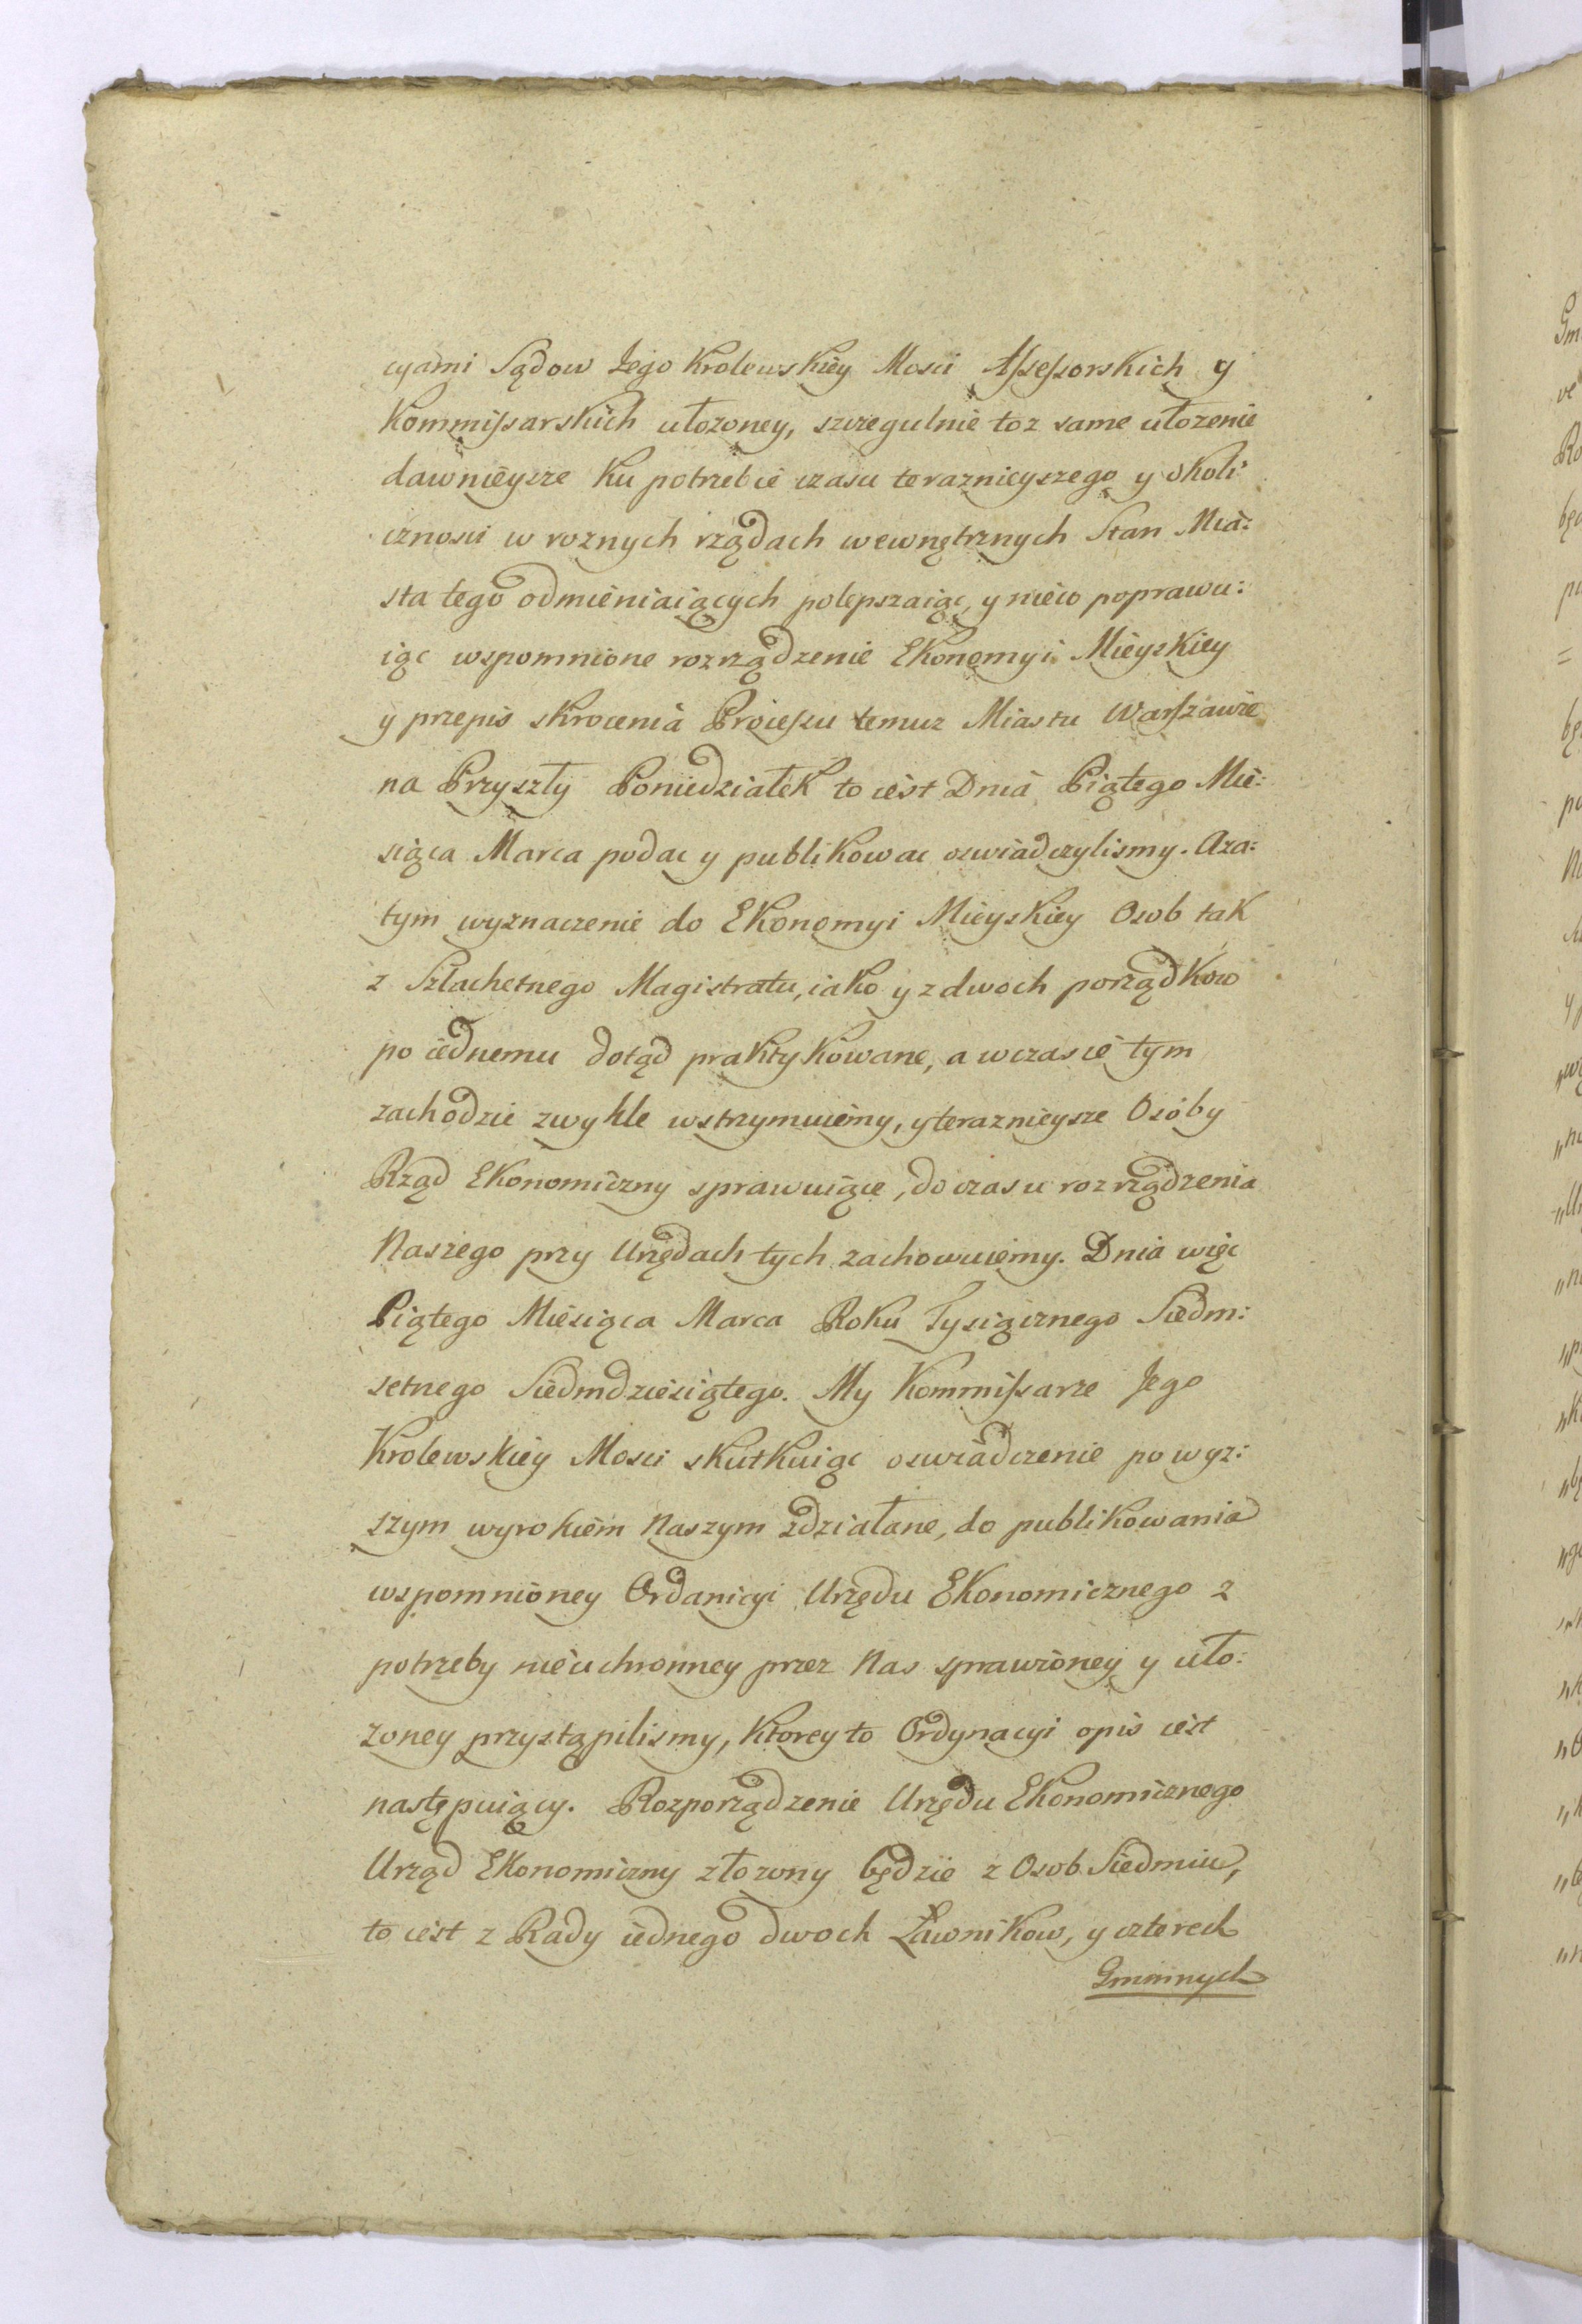 cyami Sądow Jego Krolewskiey Mosci Assessorskich y
Kommissarskich ułozoney, szczegulnie toz same ułozenie
dawnieysze ku potrzebie czasu teraznieyszego y okoli:
cznosci w roznych rządach wewnętrznych Stan Mia:
sta tego odmieniaiących polepszaiąc, y nieco poprawu:
iąc wspomnione rozrządzenie Ekonomyi Mieyskiey
y przepis skrocenia Processu temuz Miastu Warszawie
na Przyszły Poniedziałek to iest Dnia Piątego Mie:
siąca Marca podac y publikowac oswiadczylismy. Aza:
tym wyznaczenie do Ekonomyi Mieyskiey Osob tak
z Szlachetnego Magistratu, iako y z dwoch porządkow
po iednemu dotąd praktykowane, a wczasie tym
zachodzic zwykle wstrzymuiemy, y teraznieysze Osoby
Rząd Ekonomiczny sprawuiące, do czasu rozrządzenia
Naszego przy Urzędach tych zachowuiemy. Dnia więc
Piątego Miesiąca Marca Roku Tysiącznego Siedm:
setnego Siedmdziesiątego. My Kommissarze Jego
Krolewskiey Mosci skutkuiąc oswiadczenie powyz:
szym wyrokiem Naszym zdziałane, do publikowania
wspomnioney Ordanicyi Urzędu Ekonomicznego z
potrzeby nieuchronney przez Nas sprawioney y uło:
zoney przystąpilismy, ktorey to Ordynacyi opis iest
następuiący. Rozporządzenie Urzędu Ekonomicznego
Urząd Ekonomiczny złozony będzie z Osob Siedmiu,
to iest z Rady iednego dwoch Ławnikow, y czterech
Gminnych